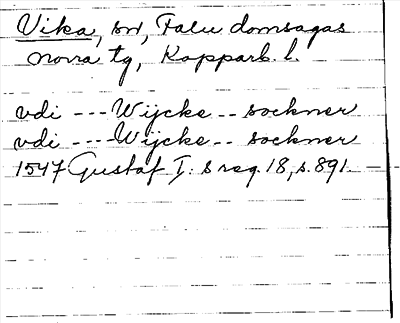 Vika, sn, Falu domsagas
norra tg, Kopparb. l.
vdi --- Wijcke -- sockner
vdi --- Wijcke -- sockner
1547 Gustaf I:s reg. 18, s. 891.